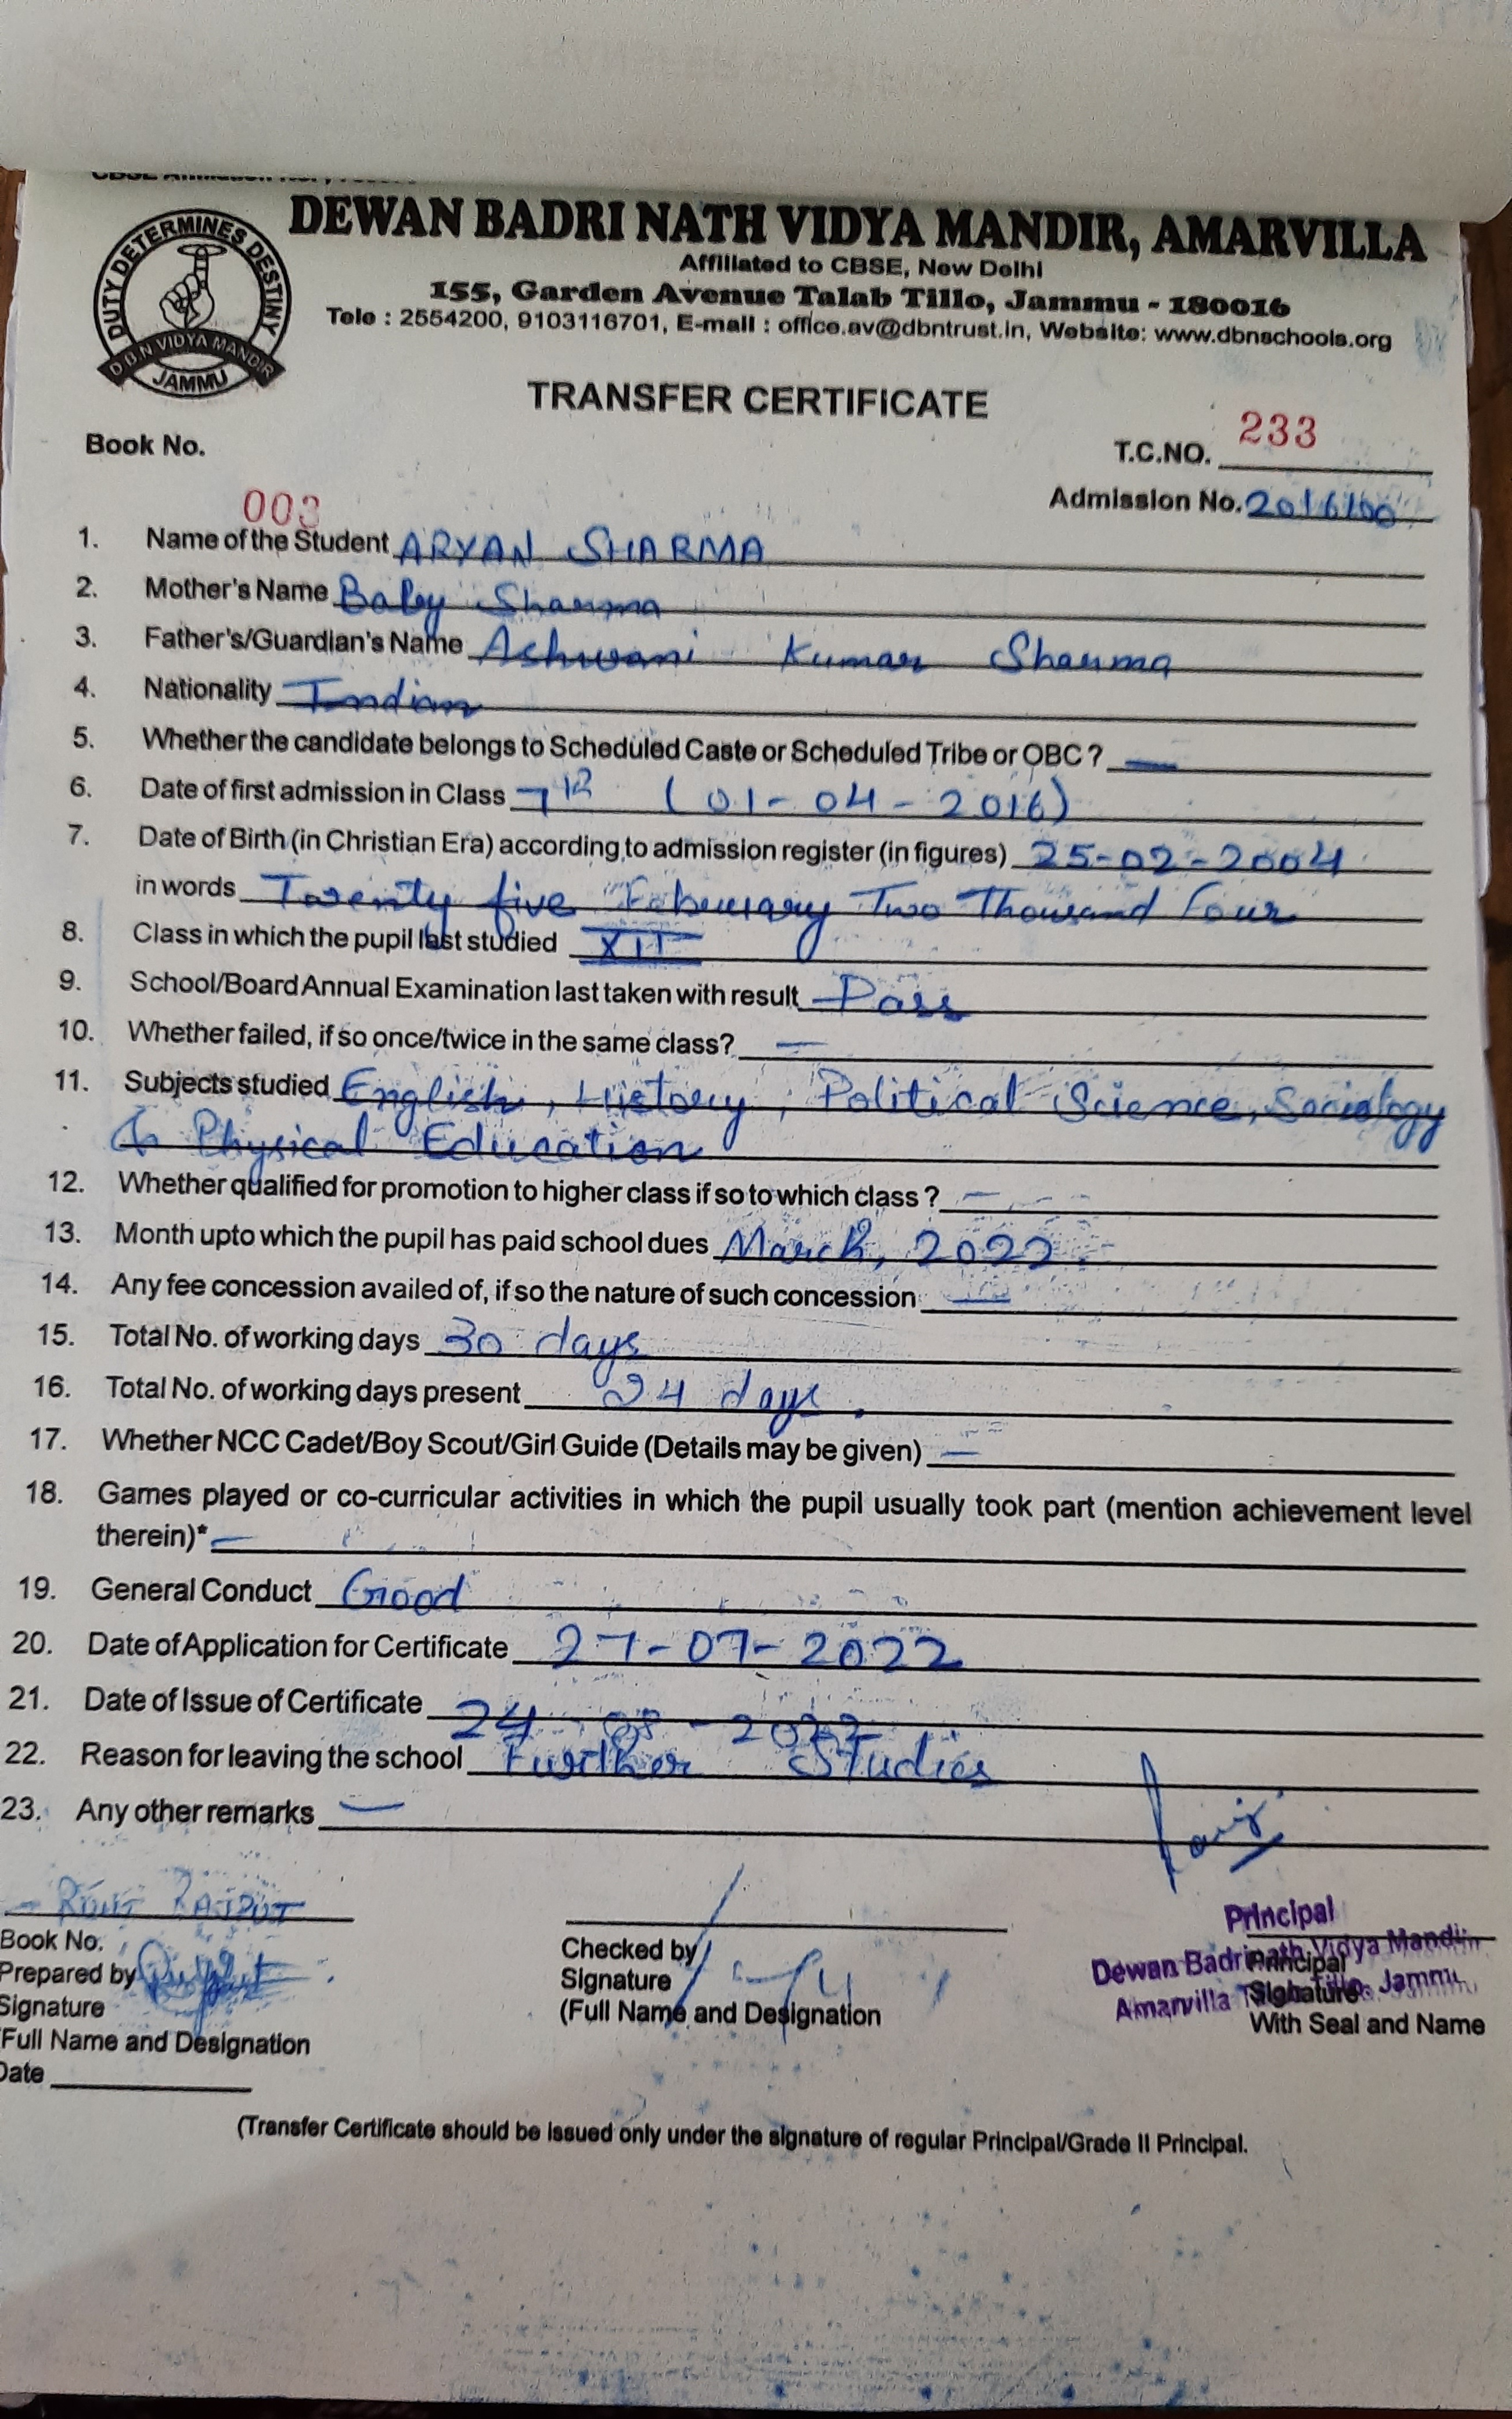 DUTY DETERMINES DESTINY
D B N VIDYA MANDIR
JAMMU
DEWAN BADRI NATH VIDYA MANDIR, AMARVILLA
Affiliated to CBSE, New Delhi
155, Garden Avenue Talab Tillo, Jammu - 180016
Tele : 2554200, 9103116701, E-mail : office.av@dbntrust.in, Website: www.dbnschools.org
TRANSFER CERTIFICATE
Book No. 003
T.C.NO. 233
Admission No. 2016100
1. Name of the Student ARYAN SHARMA
2. Mother's Name Baby Sharma
3. Father's/Guardian's Name Ashwani Kumar Sharma
4. Nationality Indian
5. Whether the candidate belongs to Scheduled Caste or Scheduled Tribe or OBC ? —
6. Date of first admission in Class 7th (01-04-2016)
7. Date of Birth (in Christian Era) according to admission register (in figures) 25-02-2004
in words Twenty five February Two Thousand Four
8. Class in which the pupil last studied XII
9. School/Board Annual Examination last taken with result Pass
10. Whether failed, if so once/twice in the same class? —
11. Subjects studied English, History, Political Science, Sociology
& Physical Education
12. Whether qualified for promotion to higher class if so to which class ? —
13. Month upto which the pupil has paid school dues March, 2022.
14. Any fee concession availed of, if so the nature of such concession —
15. Total No. of working days 30 days
16. Total No. of working days present 24 days.
17. Whether NCC Cadet/Boy Scout/Girl Guide (Details may be given) —
18. Games played or co-curricular activities in which the pupil usually took part (mention achievement level
therein)* —
19. General Conduct Good
20. Date of Application for Certificate 27-07-2022
21. Date of Issue of Certificate 24-08-2022
22. Reason for leaving the school Further Studies
23. Any other remarks —
RAJPUT
Book No.
Prepared by
Signature
(Full Name and Designation
Date
Checked by
Signature
(Full Name and Designation
Principal
Dewan Badrinath Vidya Mandir
Amarvilla Jammu
Principal
Signature
With Seal and Name
(Transfer Certificate should be issued only under the signature of regular Principal/Grade II Principal.